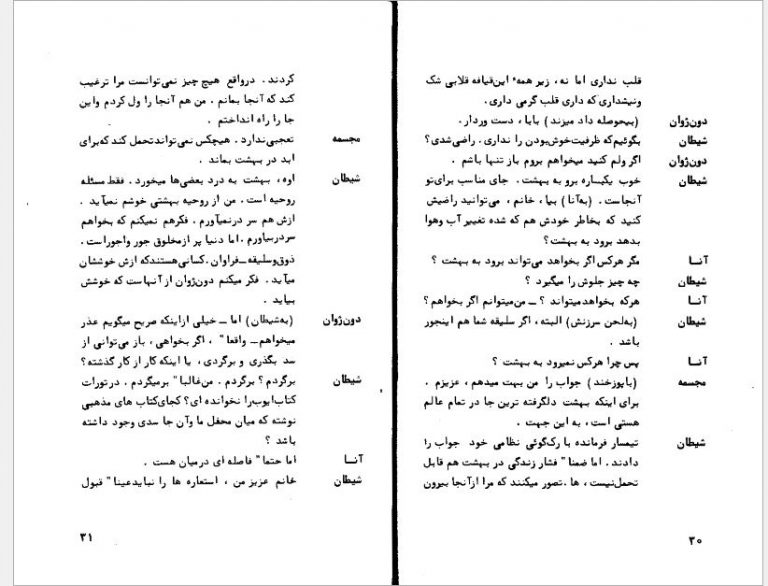 قلب نداری اما نه ، زیر همهٔ این‌قیافه قلابی شک
ونیشداری که داری قلب گرمی داری.
دون‌ژوان (بیحوصله داد میزند) بابا، دست وردار.
شیطان بگوئیم‌که ظرفیت‌خوش‌بودن را نداری. راضی‌شدی؟
دون‌ژوان اگر ولم کنید میخواهم بروم باز تنها باشم .
شیطان خوب یکپاره برو به بهشت . جای مناسب برای‌تو
آنجاست. (به‌آنا) بیا، خانم ، می‌توانید راضیش
کنید که بخاطر خودش هم که شده تغییر آب وهوا
بدهد برود به بهشت؟
آنـا مگر هرکس اگر بخواهد می‌تواند برود به بهشت ؟
شیطان چه چیز جلوش را میگیرد ؟
آنا هرکه بخواهدمیتواند ؟ ـ من‌میتوانم اگر بخواهم؟
شیطان (به‌لحن سرزنش) البته، اگر سلیقه شما هم اینجور
باشد .
آنـا پس چرا هرکس نمیرود به بهشت ؟
مجسمه (باپوزخند) جواب را من بهت میدهم ، عزیزم .
برای اینکه بهشت دلگرفته ترین جا در تمام عالم
هستی است ، به این جهت .
شیطان تیمسار فرمانده با رک‌گوئی نظامی خود جواب را
دادند . اما ضمنا" فشار زندگی در بهشت هم قابل
تحمل‌نیست، ها .تصور میکنند که مرا ازآنجا بیرون
۳۰
کردند . درواقع هیچ چیز نمی‌توانست مرا ترغیب
کند که آنجا بمانم . من هم آنجا را ول کردم واین
جا را راه انداختم .
مجسمه تعجبی‌ندارد . هیچکس نمی‌تواندتحمل کندکه‌برای
ابد در بهشت بماند .
شیطان اوه، بهشت به درد بعضی‌ها میخورد. فقط مسئله
روحیه است . من از روحیه بهشتی خوشم نمیآید .
ازش هم سر درنمیآورم . فکرهم نمیکنم که بخواهم
سردربیاورم . اما دنیا پر ازمخلوق جور واجوراست.
ذوق‌وسلیقه‌ـ‌فراوان .کسانی‌هستندکه ازش خوششان
میآید . فکر میکنم دون‌ژوان از آنهاست که خوشش
بیاید .
دون‌ژوان (به‌شیطان) اما ـ خیلی ازاینکه صریح میگویم عذر
میخواهم ـ واقعا" ، اگر بخواهی ، باز می‌توانی از
سد بگذری و برگردی ، یا اینکه کار از کار گذشته؟
شیطان برگردم ؟ برگردم . من‌غالبا" برمیگردم . درتورات
کتاب‌ایوب‌را نخوانده ای؟ کجای‌کتاب های مذهبی
نوشته که میان محفل ما وآن جا سدی وجود داشته
باشد ؟
آنـا اما حتما" فاصله ای درمیان هست .
شیطان خانم عزیز من ، استعاره ها را نبایدعینا" قبول
۳۱